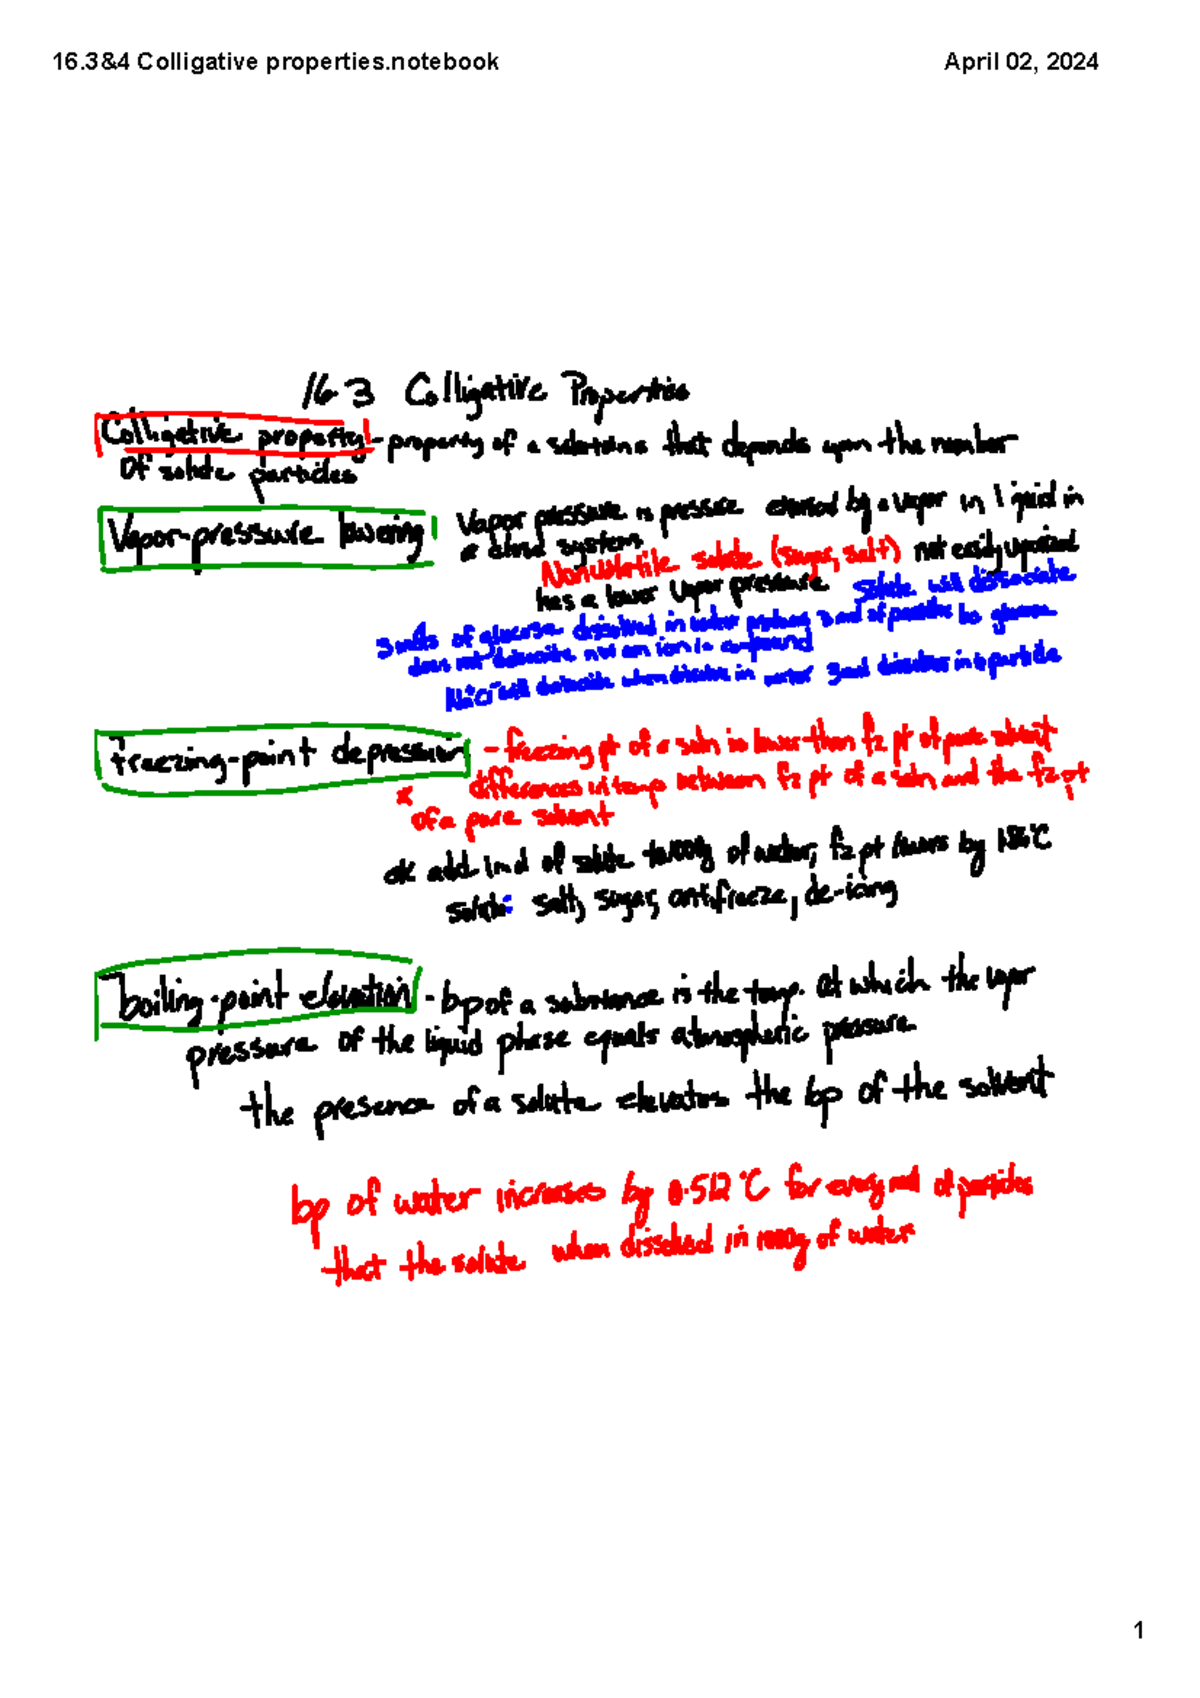 16.3&4 Colligative properties.notebook
April 02, 2024
16.3 Colligative Properties
Colligative property - property of a solutions that depends upon the number
of solute particles
Vapor-pressure lowering
Vapor pressure is pressure exerted by a vapor in liquid in
a closed systems
Nonvolatile solute (sugar, salt) not easily vaporized
has a lower vapor pressure solute will dissociate
3 mols of glucose dissolved in water produces 3 mol of particles bc glucose
does not dissociate not an ionic compound
Na+Cl- will dissociate when dissolve in water 3 mol dissolves in 6 particle
freezing-point depression - freezing pt of a soln is lower than fz pt of pure solvent
* differences in temp between fz pt of a soln and the fz pt
of a pure solvent
add 1 mol of solute to 1000g of water, fz pt lowers by 1.86°C
solute: salt, sugar, antifreeze, de-icing
boiling-point elevation - bp of a substance is the temp. at which the vapor
pressure of the liquid phase equals atmospheric pressure.
the presence of a solute elevates the bp of the solvent
bp of water increases by 0.512°C for every mol of particles
that the solute when dissolved in 1000g of water
1